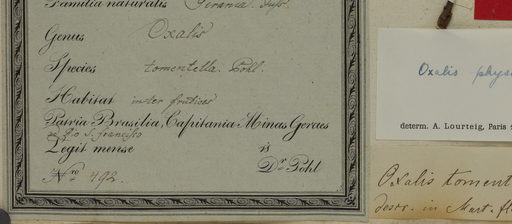 Familia naturalis Gerania. Juss.
Genus Oxalis
Species tomentella. Pohl.
Habitat inter frutices
Patria Brasilia, Capitania Minas Geraes
ad Rio S. Francisco
Legit mense is
Dr Pohl
Nro 492.
Oxalis phys
determ. A. Lourteig, Paris
Oxalis toment
descr. in Mart. fl